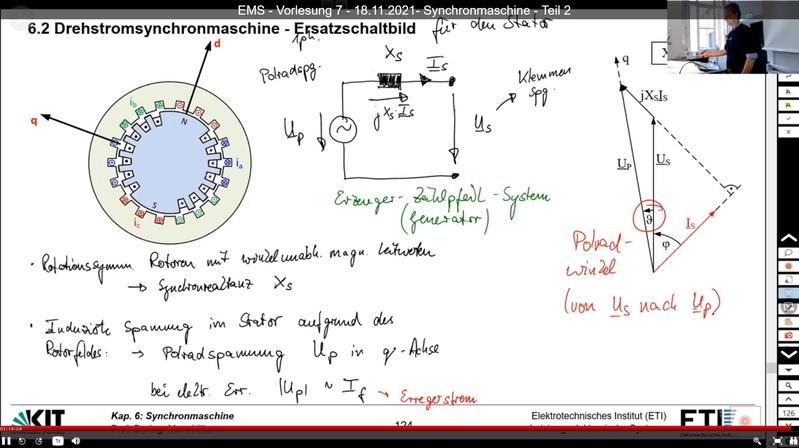 EMS - Vorlesung 7 - 18.11.2021- Synchronmaschine - Teil 2
6.2 Drehstromsynchronmaschine - Ersatzschaltbild
1ph.
für den Stator
d
q
N
S
ib
ia
ic
Polradspg.
Xs
Is
jXs Is
Up
Us
Klemmen
Spg.
Erzeuger-Zählpfeil-System
(Generator)
q
X
jXSIS
UP
US
IS
ϑ
φ
Polrad-
winkel
(von Us nach Up)
• Rotationssymm Rotoren mit winkelunabh. magn. Leitwerten
→ Synchronreaktanz Xs
• Induzierte Spannung im Stator aufgrund des
Rotorfeldes: → Polradspannung Up in q-Achse
bei elektr. Err. |Up| ~ If → Erregerstrom
KIT
Kap. 6: Synchronmaschine
124
Elektrotechnisches Institut (ETI)
ETI
126
01:19:24
1x